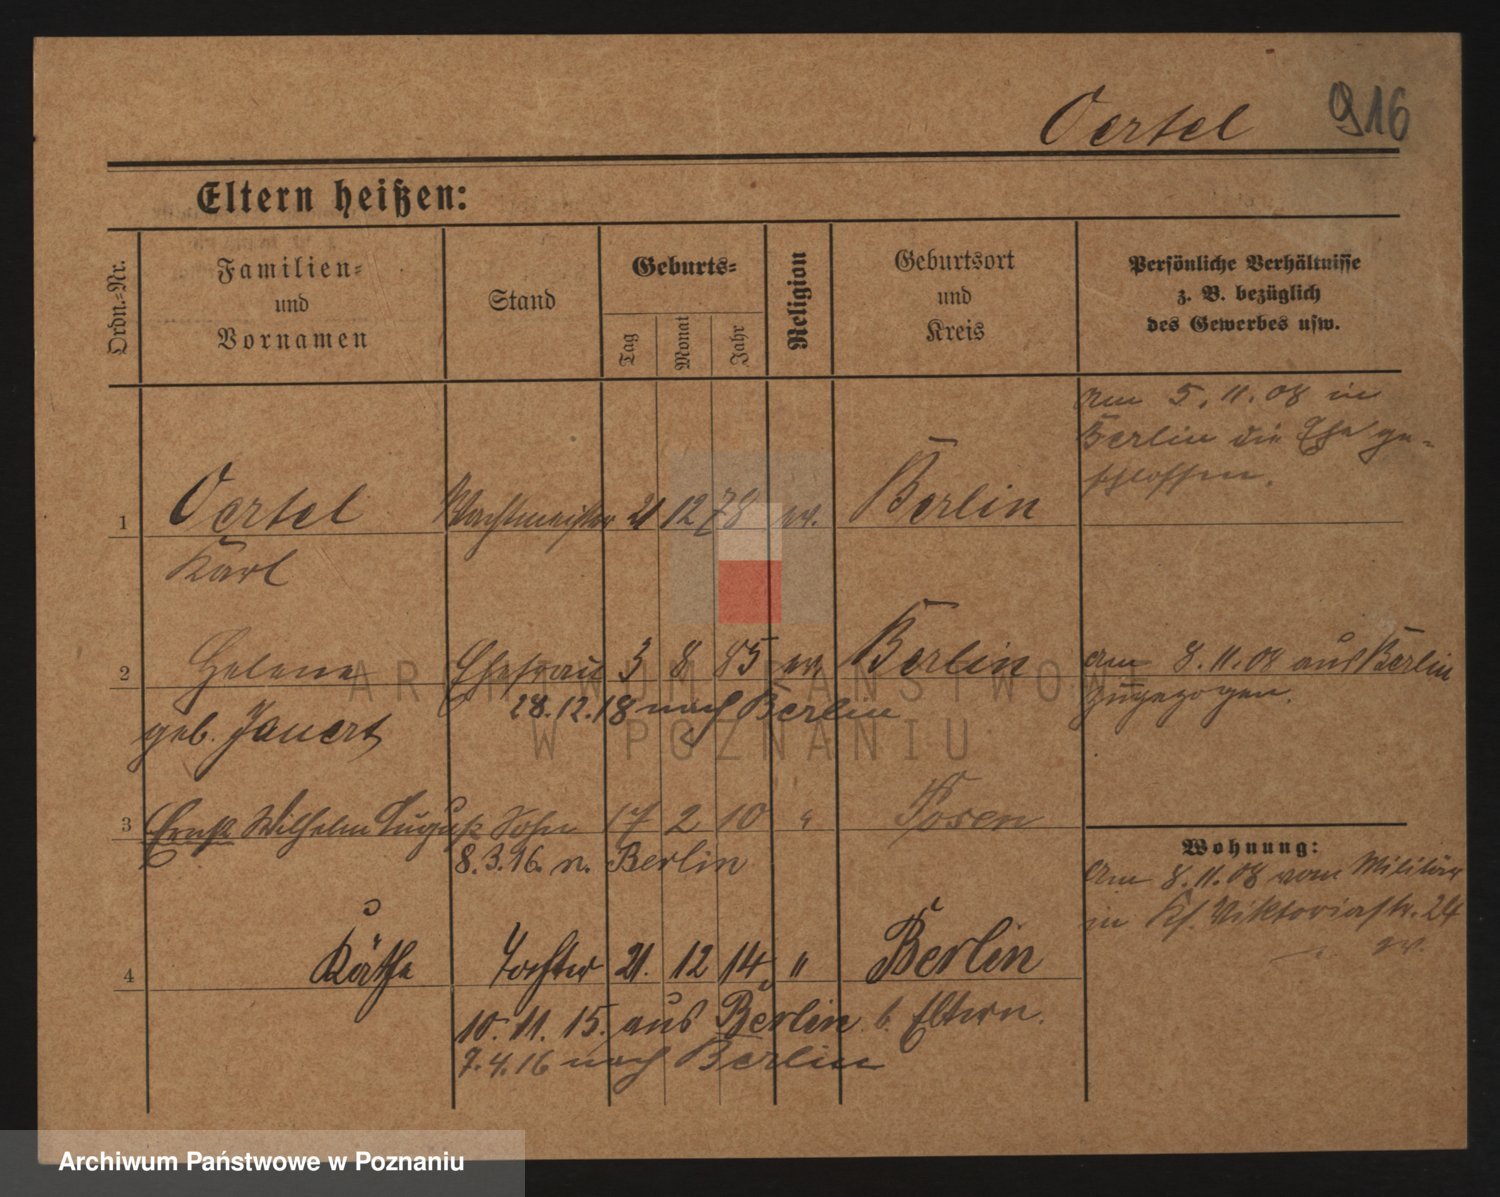 Oertel 916
Eltern heißen:
Ordn.=Nr.
Familien=
und
Vornamen
Stand
Geburts=
Tag
Monat
Jahr
Religion
Geburtsort
und
Kreis
Persönliche Verhältnisse
z. B. bezüglich
des Gewerbes usw.
Am 5. 11. 08 in
Berlin die Ehe ge-
schlossen.
1 Oertel Wachtmeister 21 12 78 ev. Berlin
Karl
2 Helene Ehefrau 3 8 85 ev. Berlin Am 8. 11. 08 aus Berlin
zugezogen.
28. 12. 18 nach Berlin
geb. Janert
3 Ernst Wilhelm August Sohn 17 2 10 " Posen
8. 3. 16. n. Berlin
Wohnung:
Am 8. 11. 08 vom Militär
in Viktoriastr. 24
4 Käthe Tochter 21. 12 14. " Berlin
10. 11. 15. aus Berlin b. Eltern.
7. 4. 16 nach Berlin
ARCHIWUM PAŃSTWOWE
W POZNANIU
Archiwum Państwowe w Poznaniu